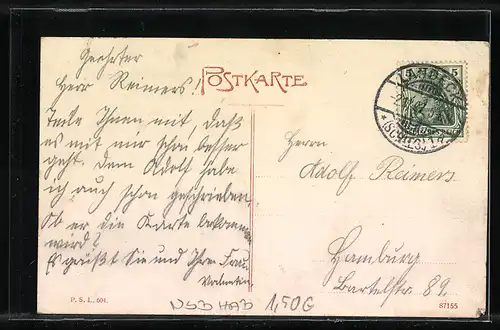 Geehrter
Herr Reimers!
Teile Ihnen mit, daß
es mit mir schon besser
geht. Dem Adolf habe
ich auch schon geschrieben.
Ob er die Karte bekommen
wird?
Es grüßt Sie und Ihre Frau
Valentin
POSTKARTE
5
LANDECK
(SCHLES.)
Herrn
Adolf Reimers
Hamburg
Bartelstr 89.
P. S. L. 604.
1,50G
87155